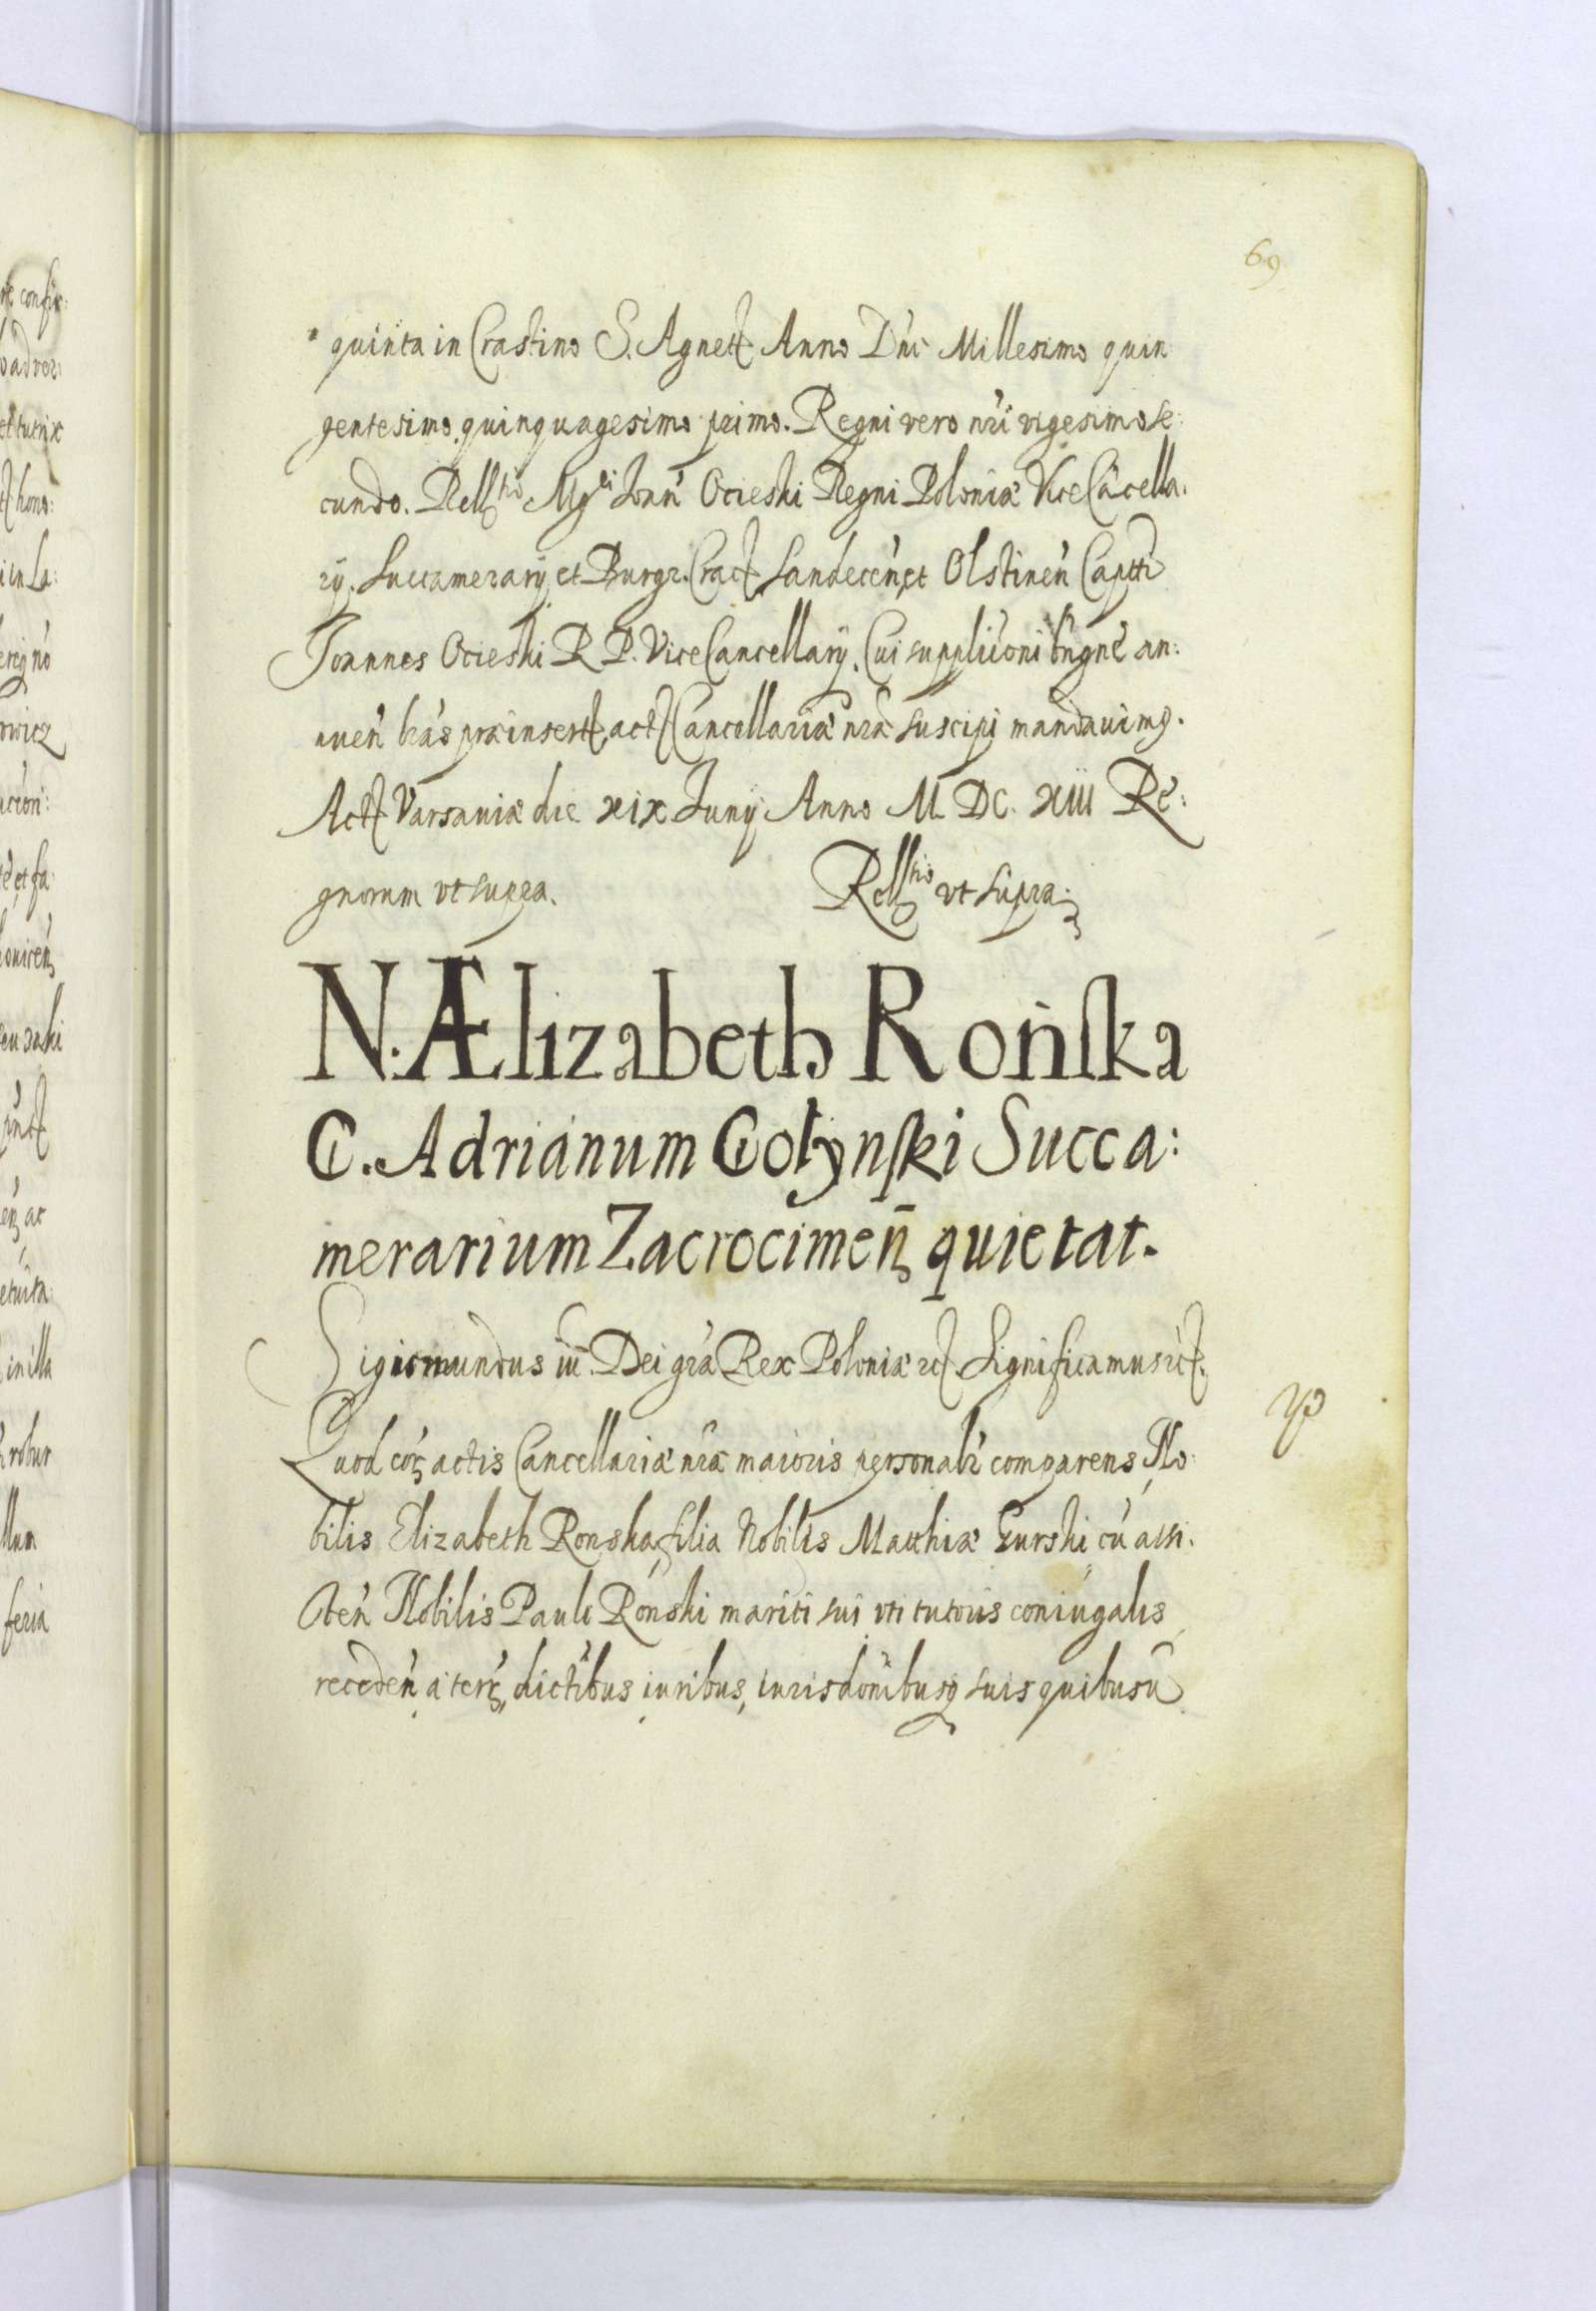 69
quinta in Crastino S. Agnett Anno Dni Millesimo quin
gentesimo quinquagesimo primo. Regni vero nri vigesimo se:
cundo. Relltio Mgci Joan Ocieski Regni Poloniæ ViceCacella.
rij. Succamerarij et Burgr. Crac Sandecen, et Olstinen Capti
Joannes Ocieski R. P. ViceCancellarij. Cui suppliconi bngne an:
nuen has præinsert, act Cancellariæ nræ suscipi mandauimq.
Act Varsaviæ die xix Junij Anno M. DC. XIII Re:
gnorum vt supra. Relltio vt supra.
N. Ælizabeth Rońska
G. Adrianum Gołynski Succa:
merarium Zacrocimen quietat.
Sigismundus iii. Dei gra Rex Poloniæ etc Significamus etc.
Quod cor actis Cancellariæ nræ maioris personalr comparens No:
bilis Elizabeth Ronska, filia Nobilis Matthiæ Gurski cu assi.
sten Nobilis Pauli Ronski mariti sui vti tutoris coniugalis
receden a terr, dictibus iuribus, iurisdonibusq suis quibusu